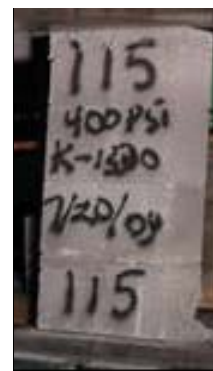 115
400 PSi
K-1520
7/20/04
115